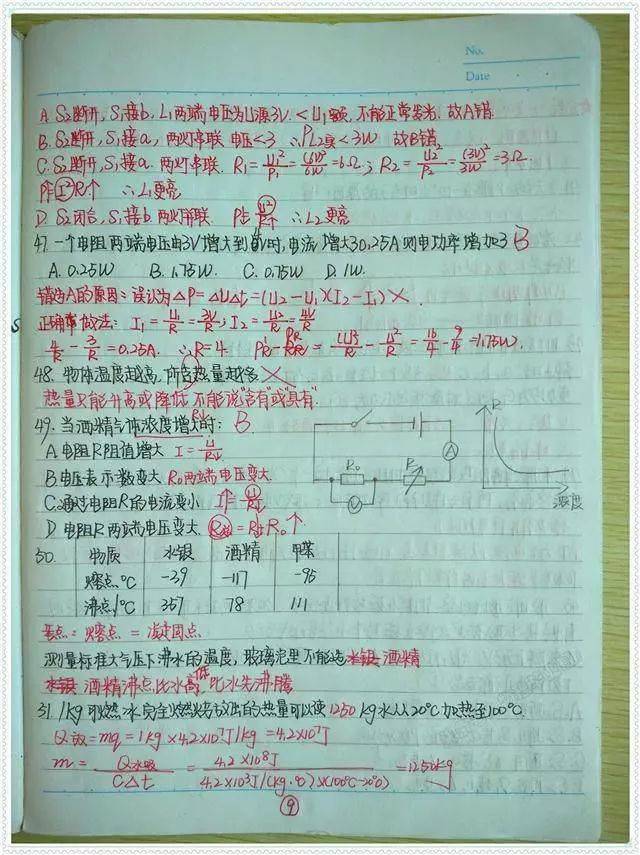 No.
Date
A. S₂断开, S₁接b, L₁两端电压为U源3V. < U₁额, 不能正常发光. 故A错.
B. S₂断开, S₁接a, 两灯串联 电压<3 ∴P_L2实<3W 故B错
C. S₂断开, S₁接a. 两灯串联. R₁=U₁²/P₁=(6V)²/6W=6Ω; R₂=U₂²/P₂=(3V)²/3W=3Ω.
P=I²R个 ∴L₁更亮
D. S₂闭合, S₁接b 两灯并联. P=U²/R个 ∴L₂更亮
47. 一个电阻两端电压由3V增大到4V时, 电流增大了0.25A 则电功率增加了B
A. 0.25W B. 1.75W. C. 0.75W D. 1W.
错为A的原因: 误认为△P=△U△I=(U₂-U₁)(I₂-I₁) ×.
正确做法: I₁=U₁/R=3V/R; I₂=U₂/R=4V/R
4/R-3/R=0.25A. ∴R=4. =U₂²/R-U₁²/R=16/4-9/4=1.75W.
48. 物体温度越高, 所含热量越多 ×
热量只能升高或降低, 不能说"含有"或"具有".
49. 当酒精气体浓度增大时: B R↓
A 电阻R阻值增大 I=U/R↓
B 电压表示数变大 R₀两端电压变大
C 通过电阻R的电流变小 I↑=U/R↓
D 电阻R两端电压变大. R总↓=R↓+R₀↑
R₀
R
V
A
R
浓度
50. 物质 水银 酒精 甲苯
熔点℃ -39 -117 -95
沸点/℃ 357 78 111
考点: 熔点=凝固点
测量标准大气压下沸水的温度, 玻璃泡里不能选水银 酒精
水银 酒精沸点比水高低 比水先沸腾
31. 1kg可燃冰完全燃烧放出的热量可以读1250kg水从20℃加热至100℃.
Q放=mq=1kg×4.2×10⁷J/kg=4.2×10⁷J
m=Q水吸/C△t=4.2×10⁸J/4.2×10³J/(kg·℃)×(100℃-20℃)=1250kg
9